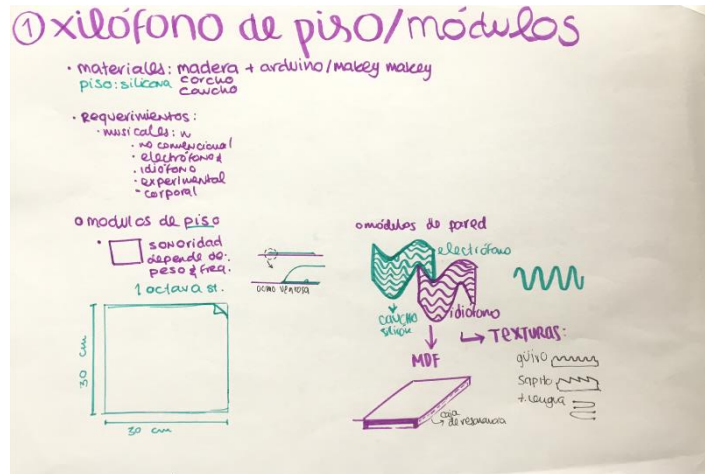 ① xilófono de piso/módulos
· materiales: madera + arduino/makey makey
piso: silicona corcho
caucho
· Requerimientos:
· musicales: n
· no convencional
· electrófono &
· idiófono
· experimental
· corporal
o modulos de piso
sonoridad
depende de:
peso & freq.
1 octava st.
30 cm
30 cm
como ventosa
o módulos de pared
electrófono
idiófono
caucho
MDF
caja
de resonancia
→ TEXTURAS:
güiro
sapito
t. lengua